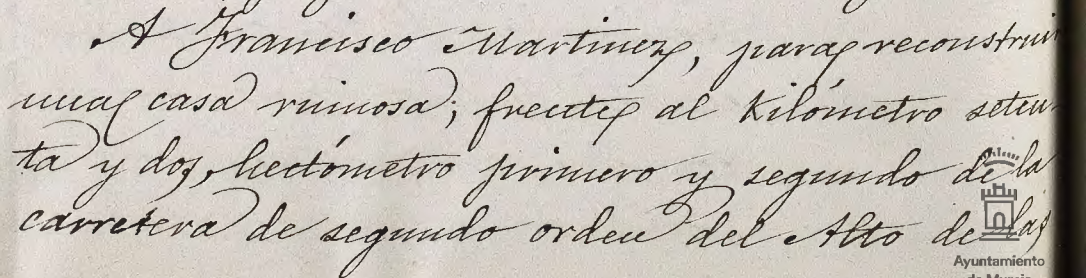 A Francisco Martinez, para reconstruir
una casa ruinosa; frente al Kilómetro seten-
ta y dos, hectómetro primero y segundo de la
carretera de segundo orden del Alto de las
Ayuntamiento
de Murcia